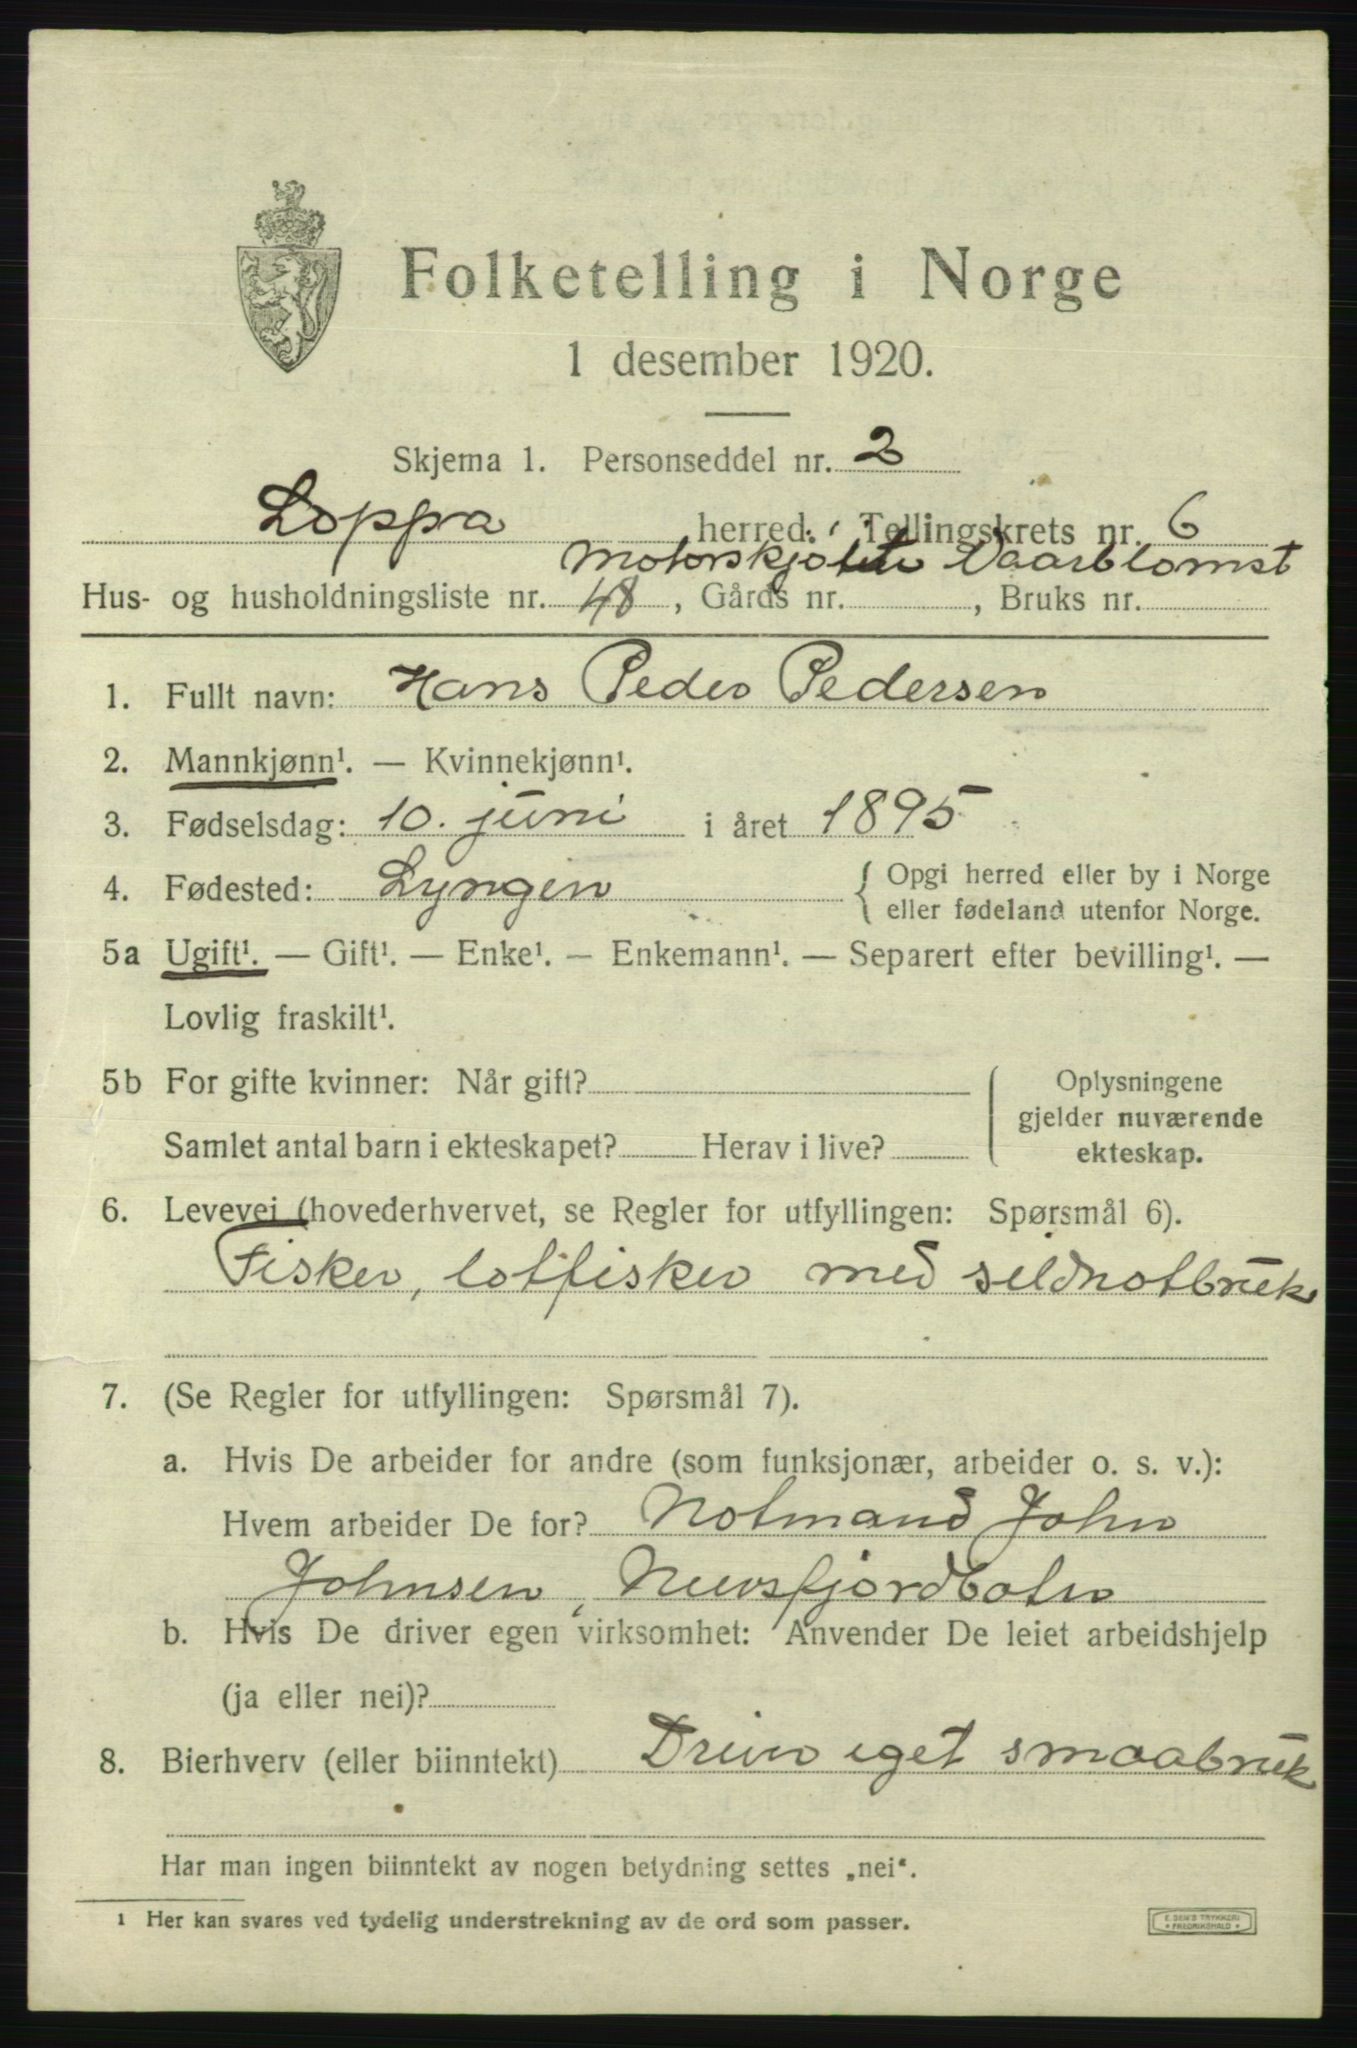 Folketelling i Norge
1 desember 1920.
Skjema 1. Personseddel nr. 2
Loppa herred. Tellingskrets nr. 6
Motorskjøite Vaarblomst
Hus- og husholdningsliste nr. 48, Gårds nr. , Bruks nr.
1. Fullt navn: Hans Peder Pedersen
2. Mannkjønn¹. — Kvinnekjønn¹.
3. Fødselsdag: 10. juni i året 1895
4. Fødested: Lyngen { Opgi herred eller by i Norge
eller fødeland utenfor Norge.
5a Ugift¹. — Gift¹. — Enke¹. — Enkemann¹. — Separert efter bevilling¹. —
Lovlig fraskilt¹.
5b For gifte kvinner: Når gift? Oplysningene
gjelder nuværende
Samlet antal barn i ekteskapet? Herav i live? ekteskap.
6. Levevei (hovederhvervet, se Regler for utfyllingen: Spørsmål 6).
Fisker, lotfisker med sildnotbruk
7. (Se Regler for utfyllingen: Spørsmål 7).
a. Hvis De arbeider for andre (som funksjonær, arbeider o. s. v.):
Hvem arbeider De for? Notmand John
Johnsen, Nuvsfjordbotn
b. Hvis De driver egen virksomhet: Anvender De leiet arbeidshjelp
(ja eller nei)?
8. Bierhverv (eller biinntekt) Driver eget smaabruk
Har man ingen biinntekt av nogen betydning settes „nei“.
¹ Her kan svares ved tydelig understrekning av de ord som passer.
E. SEM'S TRYKKERI
* FREDRIKSHALD *